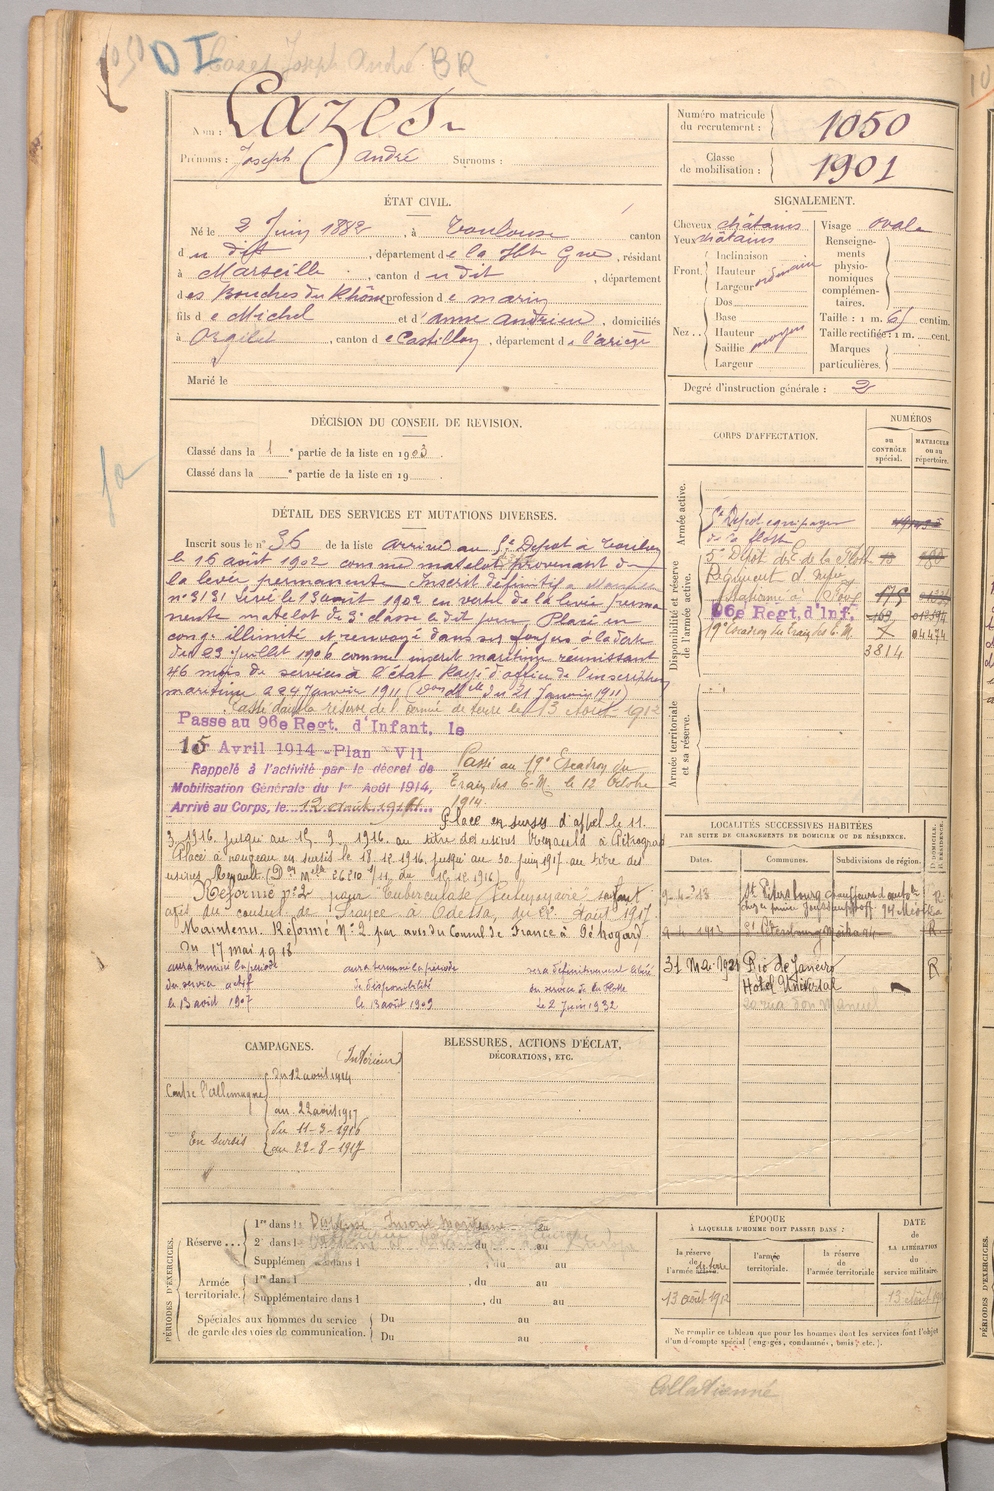 Cazes Joseph André BR
1050 D I
Nom : Cazes
Prénoms : Joseph André Surnoms :
Numéro matricule du recrutement : 1050
Classe de mobilisation : 1901
ÉTAT CIVIL.
Né le 2 Juin 1882, à Toulouse canton
du dit, département de la Hte Gne, résidant
à Marseille, canton du dit, département
des Bouches du Rhône profession de marin
fils de Michel et d'anne andrieu, domiciliés
à Orgibet, canton de Castillon, département de l'ariège
Marié le
SIGNALEMENT.
Cheveux châtains
Yeux châtains
Front. Inclinaison
Hauteur ordinaire
Largeur
Nez. Dos
Base
Hauteur
Saillie moyen
Largeur
Visage ovale
Renseignements physionomiques complémentaires.
Taille : 1 m. 65 centim.
Taille rectifiée : 1 m. cent.
Marques particulières.
Degré d'instruction générale : 2
DÉCISION DU CONSEIL DE REVISION.
Classé dans la 1e partie de la liste en 1903.
Classé dans la e partie de la liste en 19
DÉTAIL DES SERVICES ET MUTATIONS DIVERSES.
Inscrit sous le n° 36 de la liste arrivé au 5e Depot à Toulon
le 16 août 1902 comme matelot provenant de
la levée permanente Inscrit définitif a Marseille
n° 3131 levé le 13 août 1902 en vertu de la levée perma
nente matelot de 3e classe le dit jour, Placé en
congé illimité et renvoyé dans ses foyers à la date
du 23 Juillet 1906 comme inscrit maritime réunissant
46 mois de services à l'état Rayé d'office de l'inscription
maritime le 24 Janvier 1911 ( du 21 Janvier 1911)
Passé dans la réserve de l'armée de terre le 13 Août 1912
Passe au 96e Regt. d'Infant, le
15 Avril 1914 - Plan VII
Rappelé à l'activité par le décret de
Mobilisation Générale du 1er Août 1914,
Arrivé au Corps, le 12 août 1914
Passé au 19e Escadron du
Train des E.M. le 12 Octobre
1914.
Placé en sursis d'appel le 11.
3.1916. jusqu'au 15.9.1916. au titre des usines Renault à Pétrograd
Placé à nouveau en sursis le 18.12.1916. jusqu'au 30 juin 1917 au titre des
usines Renault. (Don Melle 26210 1/11. du 12.1916)
Réformé n° 2 pour "Tuberculose Pulmonaire" suivant
avis du consul de France à Odessa, du 22 Août 1917.
Maintenu Réformé N° 2 par avis du Consul de France à Pétrograd
du 17 mai 1918
aura terminé la période
du service actif
le 13 août 1907
aura terminé la période
de disponibilité
le 13 août 1909
sera définitivement libéré
du service de la flotte
le 2 Juin 1932
CORPS D'AFFECTATION.
NUMÉROS
au CONTRÔLE spécial.
MATRICULE ou au répertoire.
Armée active.
5e Depot equipages
de la flotte
Disponibilité et réserve de l'armée active.
5e Dépôt des E. de la Flotte
Régiment d'infie
96e Regt. d'Inf.
19e Escadron du Train des E.M. X 04474
3814
Armée territoriale et sa réserve.
LOCALITÉS SUCCESSIVES HABITÉES
PAR SUITE DE CHANGEMENTS DE DOMICILE OU DE RÉSIDENCE.
Dates. Communes. Subdivisions de région. D. DOMICILE. R. RÉSIDENCE.
9-4-13 St Petersbourg chauffeur d'auto R
9-4-1913 St Petersbourg R
31 Mai 1921 Rio de Janeiro R
Hôtel Universal
CAMPAGNES.
Intérieur
Contre l'allemagne
du 12 août 1914
au 22 août 1917
En sursis
du 11-3-1916
au 22-8-1917
BLESSURES, ACTIONS D'ÉCLAT,
DÉCORATIONS, ETC.
PÉRIODES D'EXERCICES.
Réserve... 1re dans l
2e dans l du au
Supplémen dans l , du au
Armée territoriale. 1re dans l , du au
Supplémentaire dans l , du au
Spéciales aux hommes du service
de garde des voies de communication. Du au
Du au
ÉPOQUE
À LAQUELLE L'HOMME DOIT PASSER DANS :
la réserve de l'armée de terre
l'armée territoriale.
la réserve de l'armée territoriale
DATE DE LA LIBÉRATION du service militaire
13 août 1912
13 Août
Ne remplir ce tableau que pour les hommes dont les services font l'objet
d'un décompte spécial (engagés, condamnés, omis, etc.).
Collationné
PÉRIODES D'EXERCICES.